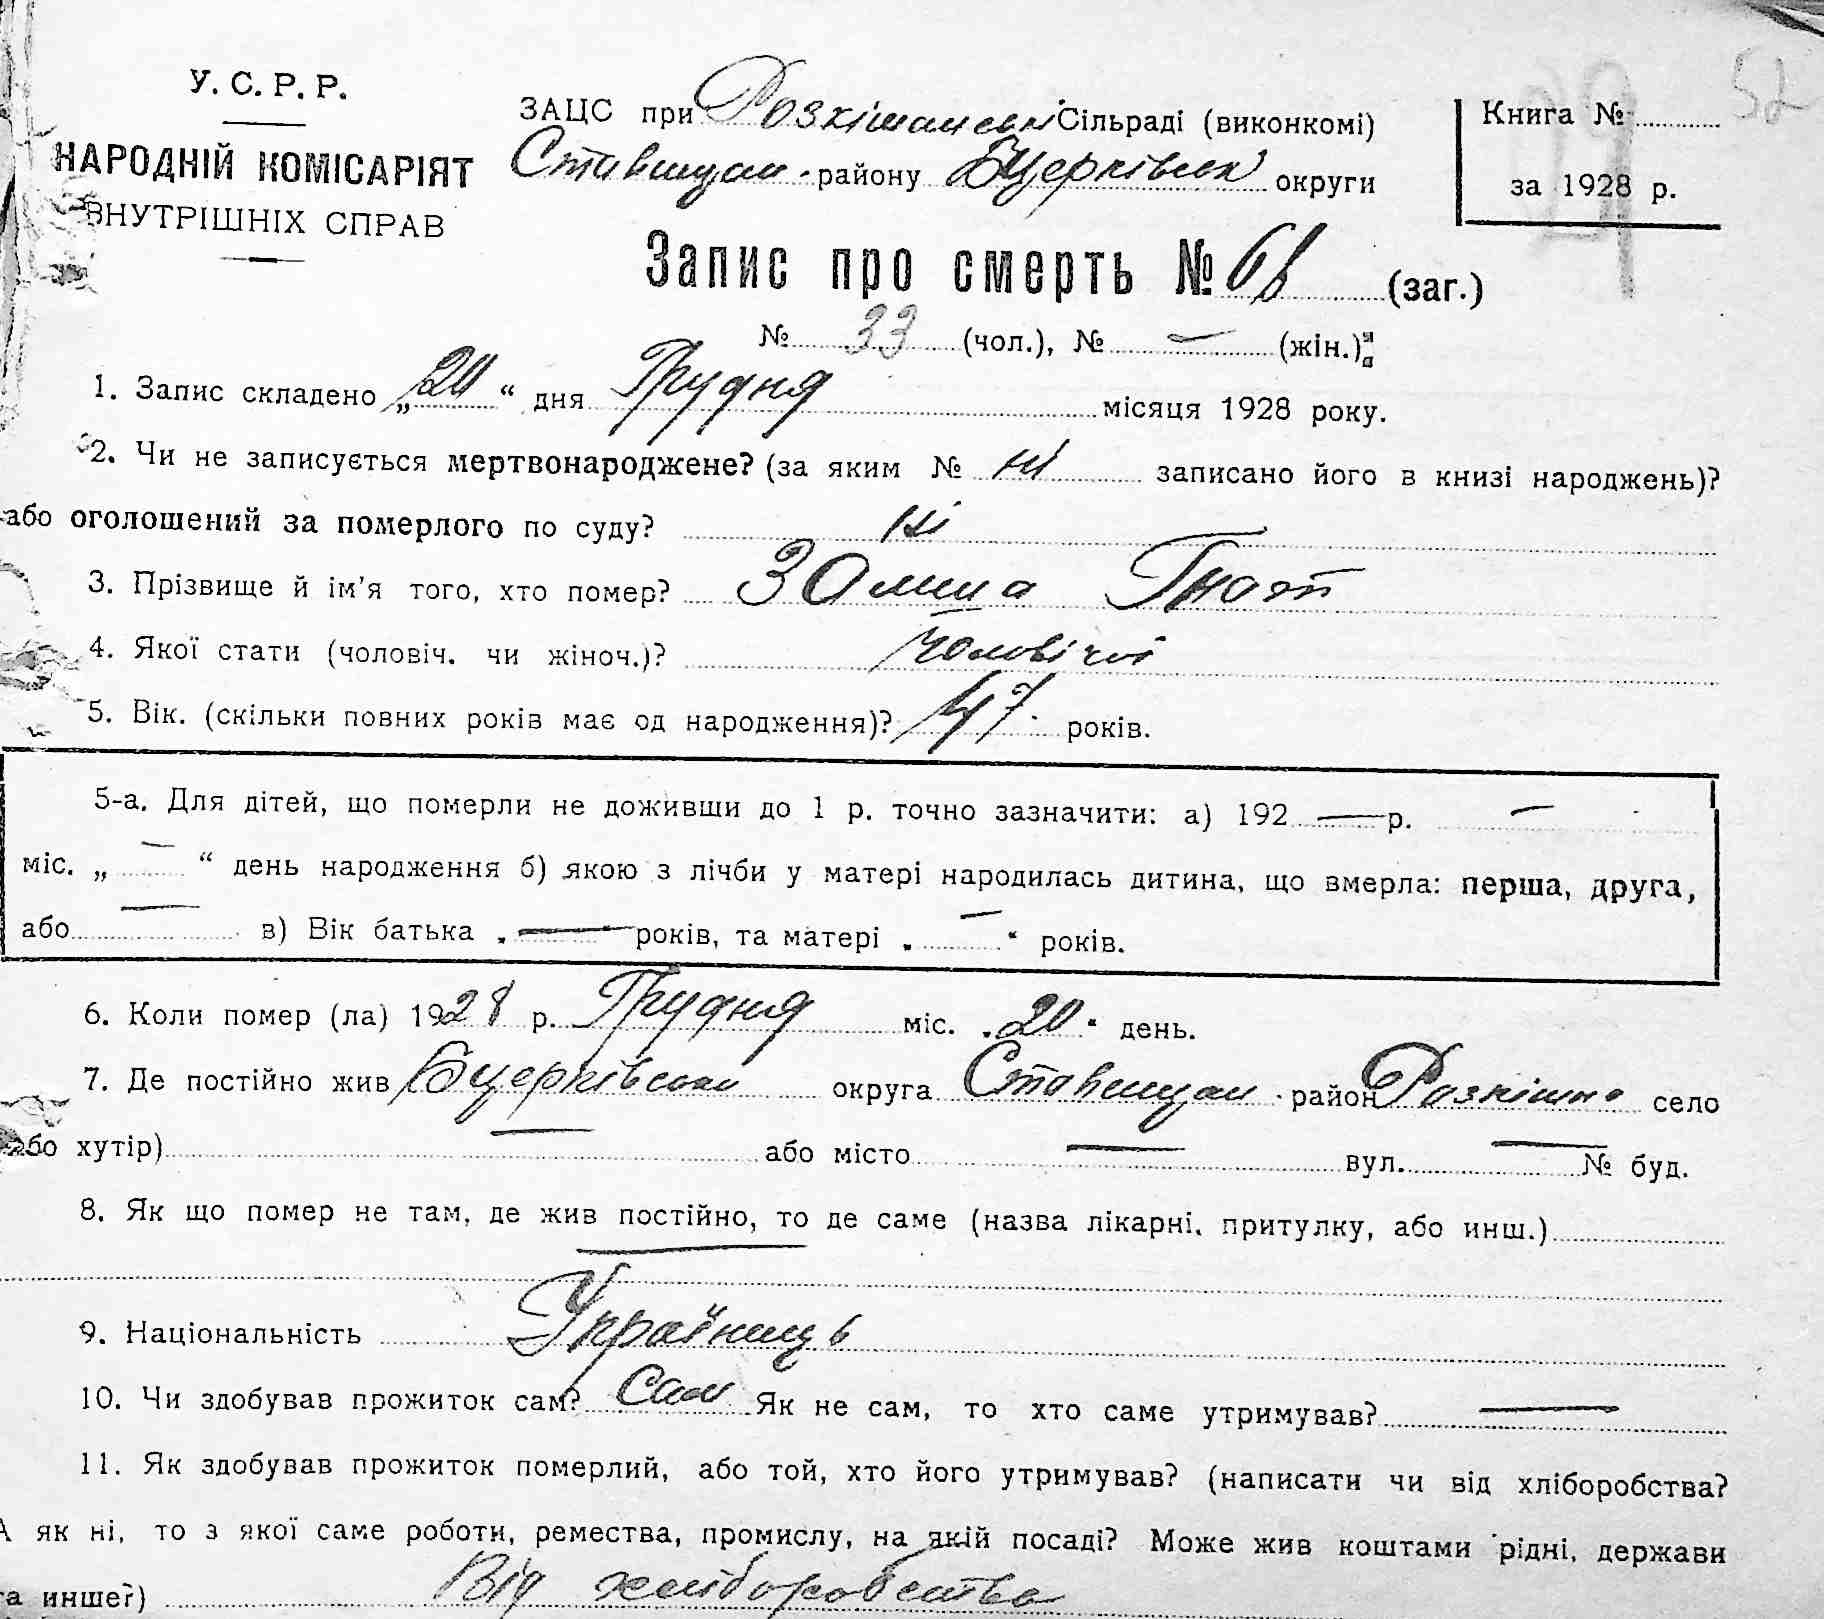 52
29
У. С. Р. Р.
НАРОДНІЙ КОМІСАРІЯТ
ВНУТРІШНІХ СПРАВ
ЗАЦС при Розкішанські Сільраді (виконкомі)
Ставищан. району БЦерківськ округи
Книга №
за 1928 р.
Запис про смерть № (заг.)
№ 33 (чол.), № — (жін.)
1. Запис складено „20“ дня Грудня місяця 1928 року.
2. Чи не записується мертвонароджене? (за яким № ні записано його в книзі народжень)?
або оголошений за померлого по суду? ні
3. Прізвище й ім’я того, хто помер? Гнат
4. Якої стати (чоловіч. чи жіноч.)? чоловічої
5. Вік. (скільки повних років має од народження)? 47 років.
5-а. Для дітей, що померли не доживши до 1 р. точно зазначити: а) 192 — р. —
міс. „ — “ день народження б) якою з лічби у матері народилась дитина, що вмерла: перша, друга,
або — в) Вік батька „ — “ років, та матері „ — “ років.
6. Коли помер (ла) 1928 р. Грудня міс. „20“ день.
7. Де постійно жив БЦерківська округа Ставищан. район Розкішна село
або хутір) — або місто — вул. — № буд.
8. Як що помер не там, де жив постійно, то де саме (назва лікарні, притулку, або инш.)
—
9. Національність Українець
10. Чи здобував прожиток сам? Сам Як не сам, то хто саме утримував? —
11. Як здобував прожиток померлий, або той, хто його утримував? (написати чи від хліборобства?
А як ні, то з якої саме роботи, ремества, промислу, на якій посаді? Може жив коштами рідні, держави
та иншеї) Від хліборобства